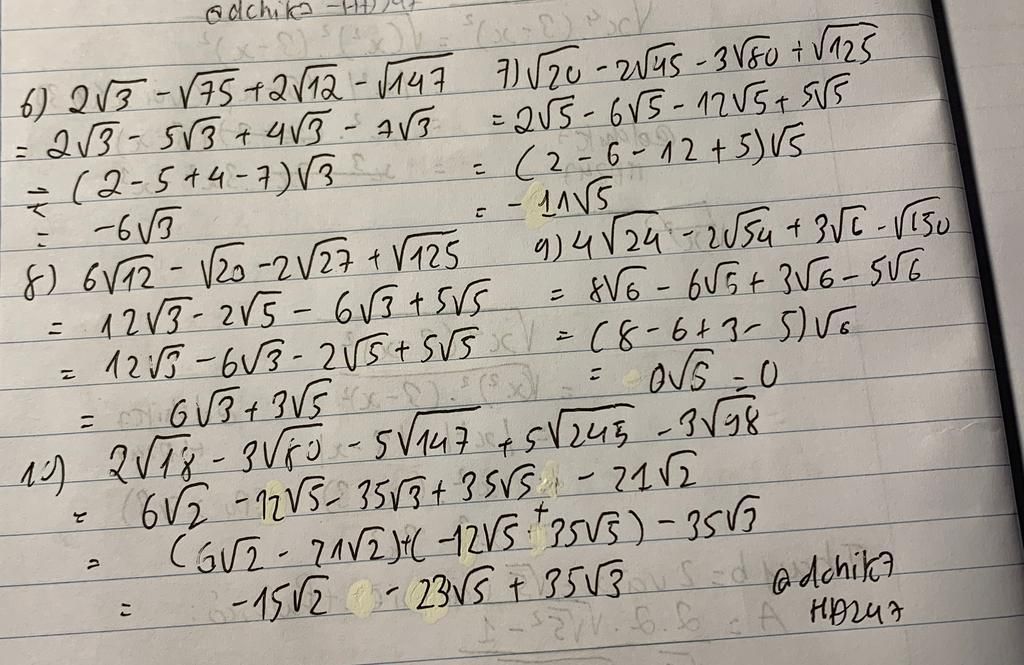 @dchik7 - HD247
6) 2√3 - √75 + 2√12 - √147
= 2√3 - 5√3 + 4√3 - 7√3
= (2 - 5 + 4 - 7)√3
= -6√3
7) √20 - 2√45 - 3√80 + √125
= 2√5 - 6√5 - 12√5 + 5√5
= (2 - 6 - 12 + 5)√5
= -11√5
8) 6√12 - √20 - 2√27 + √125
= 12√3 - 2√5 - 6√3 + 5√5
= 12√3 - 6√3 - 2√5 + 5√5
= 6√3 + 3√5
9) 4√24 - 2√54 + 3√6 - √150
= 8√6 - 6√6 + 3√6 - 5√6
= (8 - 6 + 3 - 5)√6
= 0√6 = 0
10) 2√18 - 3√80 - 5√147 + 5√245 - 3√98
= 6√2 - 12√5 - 35√3 + 35√5 - 21√2
= (6√2 - 21√2) + (-12√5 + 35√5) - 35√3
= -15√2 - 23√5 + 35√3
@dchik7
HD247